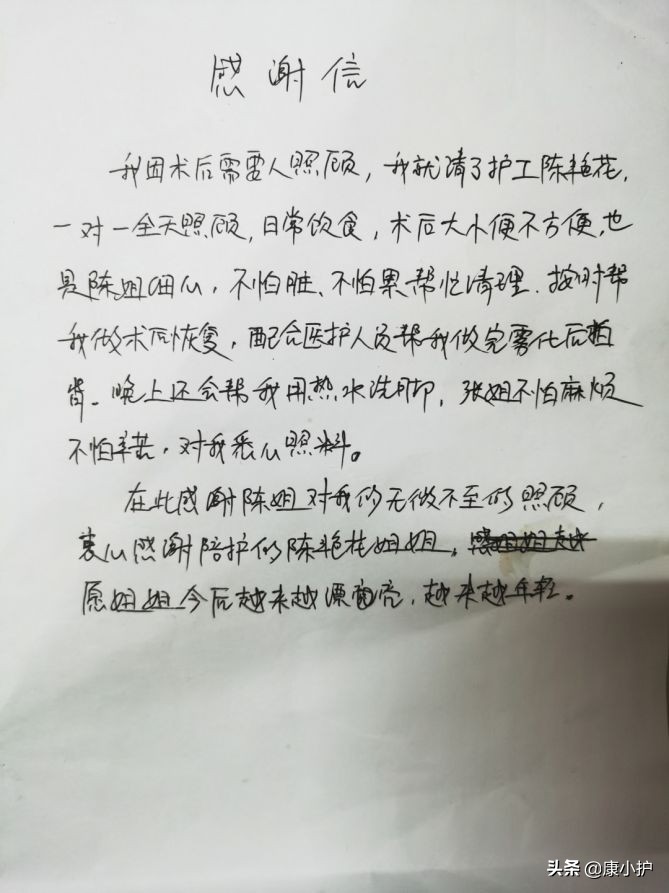 感谢信
我因术后需要人照顾，我就请了护工陈艳花，
一对一全天照顾，日常饮食，术后大小便不方便，也
是陈姐细心，不怕脏、不怕累帮忙清理．按时帮
我做术后恢复，配合医护人员帮我做完雾化后拍
背。晚上还会帮我用热水洗脚，张姐不怕麻烦
不怕辛苦，对我悉心照料。
在此感谢陈姐对我的无微不至的照顾，
衷心感谢陪护的陈艳花姐姐，
愿姐姐今后越来越漂亮，越来越年轻。
头条 @康小护